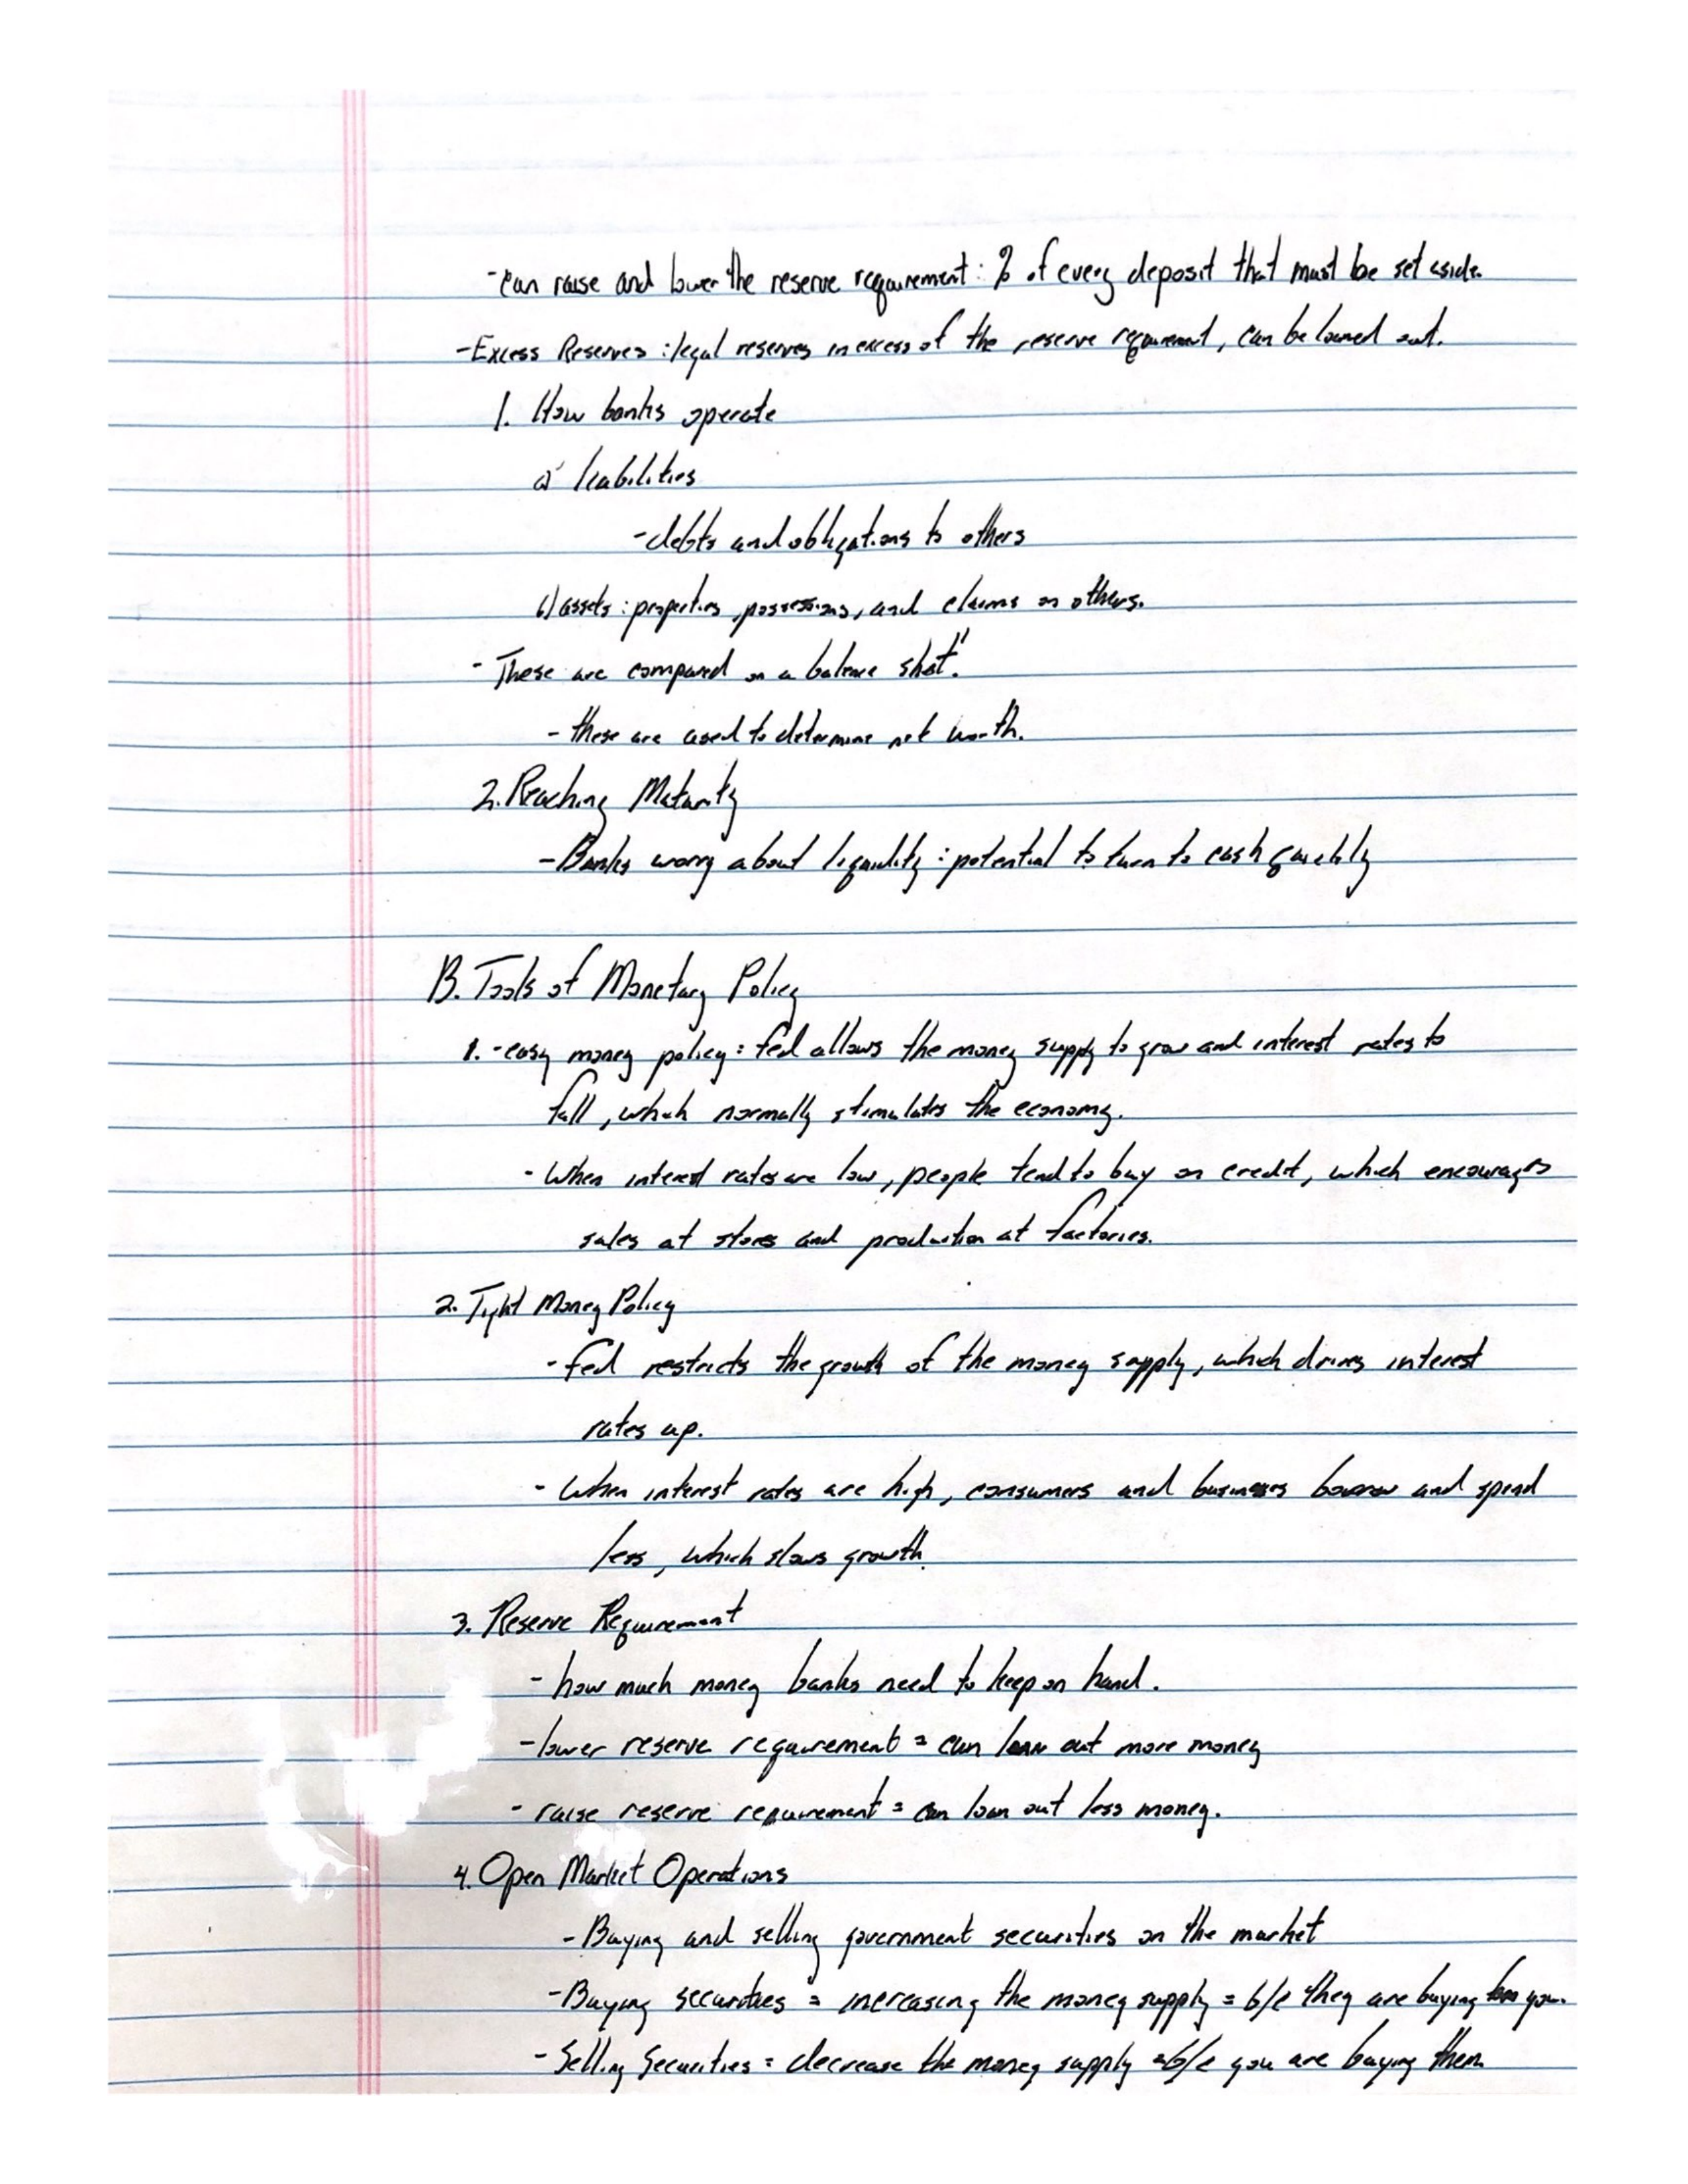 -can raise and lower the reserve requirement: % of every deposit that must be set aside.
-Excess Reserves: legal reserves in excess of the reserve requirement, can be loaned out.
1. How banks operate
a) liabilities
-debts and obligations to others
b) assets: properties, possessions, and claims on others.
- These are compared on a balance sheet."
- these are used to determine net worth.
2. Reaching Maturity
-Banks worry about liquidity: potential to turn to cash quickly
B. Tools of Monetary Policy
1. -easy money policy: fed allows the money supply to grow and interest rates to
fall, which normally stimulates the economy.
- When interest rates are low, people tend to buy on credit, which encourages
sales at stores and production at factories.
2. Tight Money Policy
- fed restricts the growth of the money supply, which drives interest
rates up.
- When interest rates are high, consumers and businesses borrow and spend
less, which slows growth.
3. Reserve Requirement
- how much money banks need to keep on hand.
-lower reserve requirement = can loan out more money
- raise reserve requirement = can loan out less money.
4. Open Market Operations
-Buying and selling government securities on the market
-Buying securities = increasing the money supply = b/c they are buying you.
- Selling Securities = decrease the money supply = b/c you are buying them